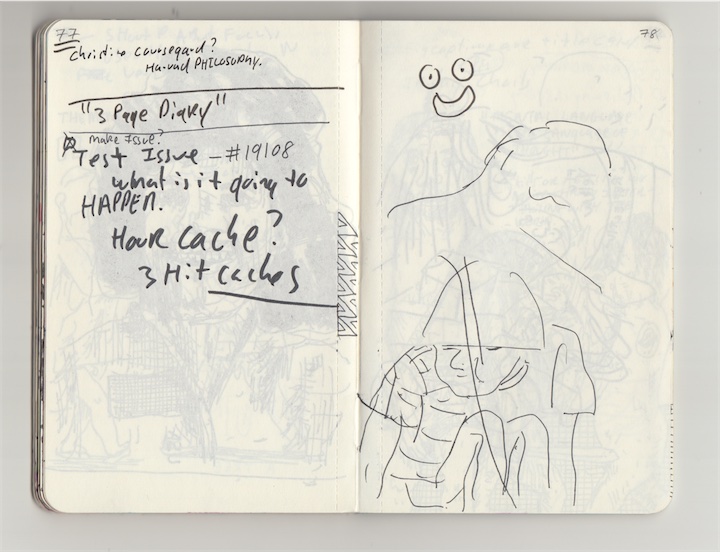 77
Christine Coursegard?
Harvard PHILOSOPHY.
"3 Page Diary"
Make Issue?
Test Issue – #19108
what is it going to
HAPPEN.
Hour cache?
3 Hit caches
78